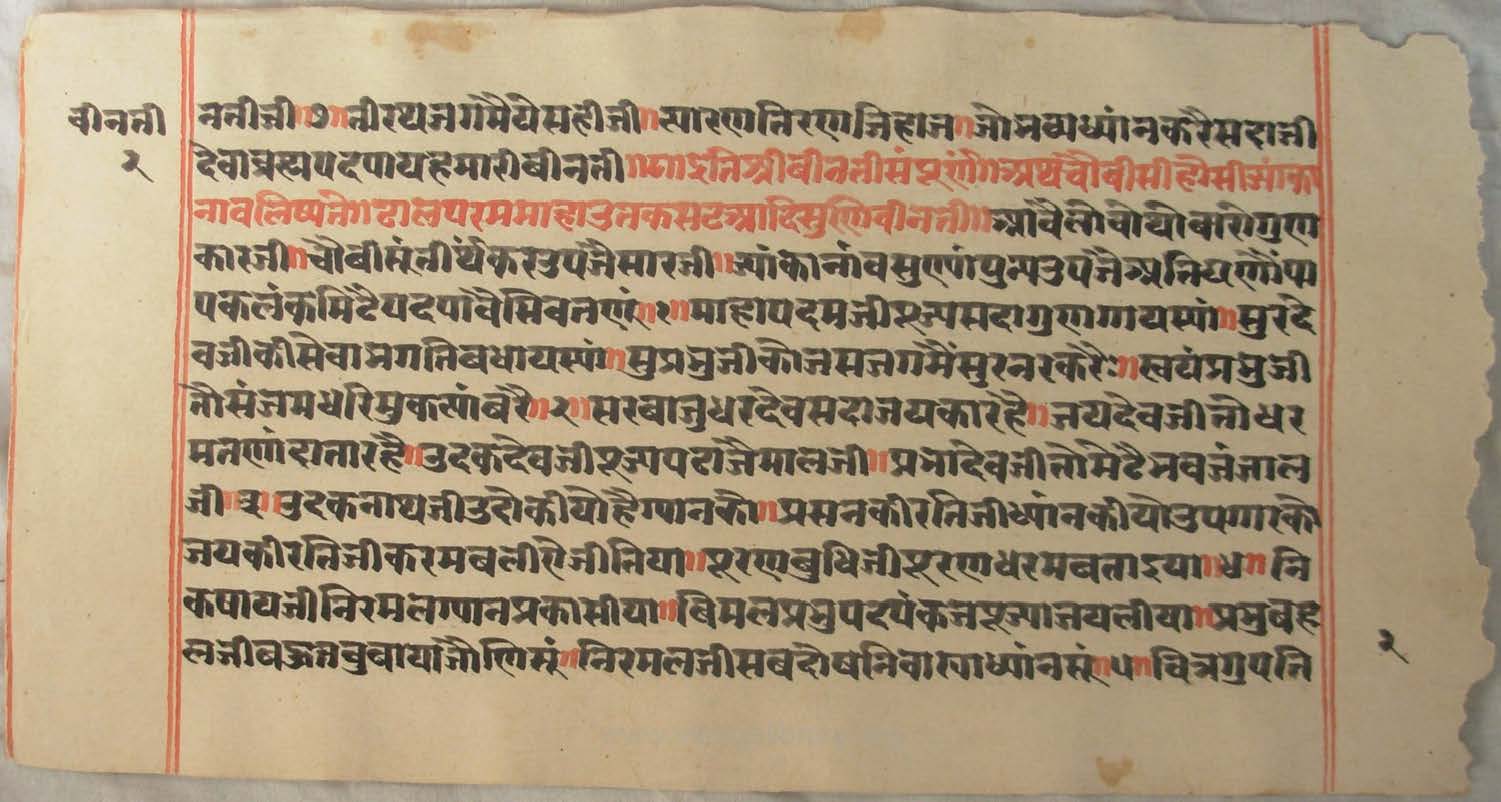 बीनती
२
नतीजी॥७॥तीरथजगमैयेसहीजी॥त्यारणतिरणजिहाज॥जोभव्यध्यांनकरैसदाजी
देवाब्रह्मपदपायहमारीबीनती॥८॥इतिश्रीबीनतीसंपूर्ण॥अथचौबीसी
नांवलिष्यते॥ढालपरममाहाउतकसटआदिसुणिवीनती॥आवैलोचोथोबारोगुण
कारजी॥चौबीसंतीर्थंकरउपजैसारजी॥ज्यांकानांवसुण्यांपुन्यउपजैअतिघणौंपा
पकलंकमिटैपदपावैसिवतणूं॥१॥माहापदमजीपूज्यसदागुणगायस्यां॥सुरदे
वजीकीसेवाभगतिबधायस्यां॥सुप्रभुजीकोजसजगमैंसुरनरकरै॥स्वयंप्रभुजी
तौसंजमधरिमुकत्यांबरै॥२॥सरबाजुधदेवसदाजयकारहै॥जयदेवजीतोधर
मतणांदातारहै॥उदकदेवजीपूज्यपढाजैमालजी॥प्रभादेवजीतोमेटैभवजंजाल
जी॥३॥उदकनाथजीउदोकीयोहैग्यानको॥प्रसनकीरतिजीध्यांनकीयोउपगारको
जयकीरतिजीकरमबलीरीजीतिया॥पूरणबुधिजीपूरणधरमबताइया॥४॥नि
कषायजीनिरमलग्यानप्रकासीया॥बिमलप्रभुपदपंकजपूज्याजयलीया॥प्रभुबह
लजी॥निरमलजीसबदोषनिवास्याध्यांनसूं॥५॥चित्रगुपति
२